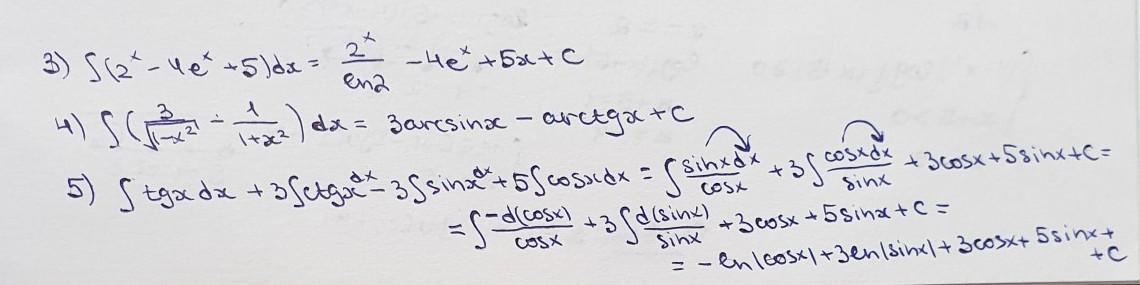 3) ∫(2^x - 4e^x + 5)dx = 2^x/ln2 - 4e^x + 5x + C
4) ∫(3/√(1-x²) - 1/(1+x²)) dx = 3arcsinx - arctgx + C
5) ∫tgx dx + 3∫ctgx dx - 3∫sinx dx + 5∫cosx dx = ∫ sinxdx/cosx + 3∫ cosxdx/sinx + 3cosx + 5sinx + C =
= ∫ -d(cosx)/cosx + 3∫ d(sinx)/sinx + 3cosx + 5sinx + C =
= -ln|cosx| + 3ln|sinx| + 3cosx + 5sinx +
+C